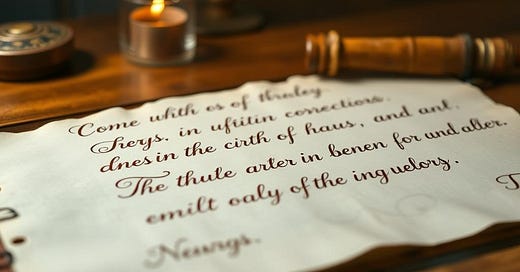 Come whith es of thraley.
Sreys. in uftitin corrections.
dnes in the cirth of haus, and ant.
The thule arter in benen for und aller.
emilt oaly of the ing uelors.
T
Neurgs.